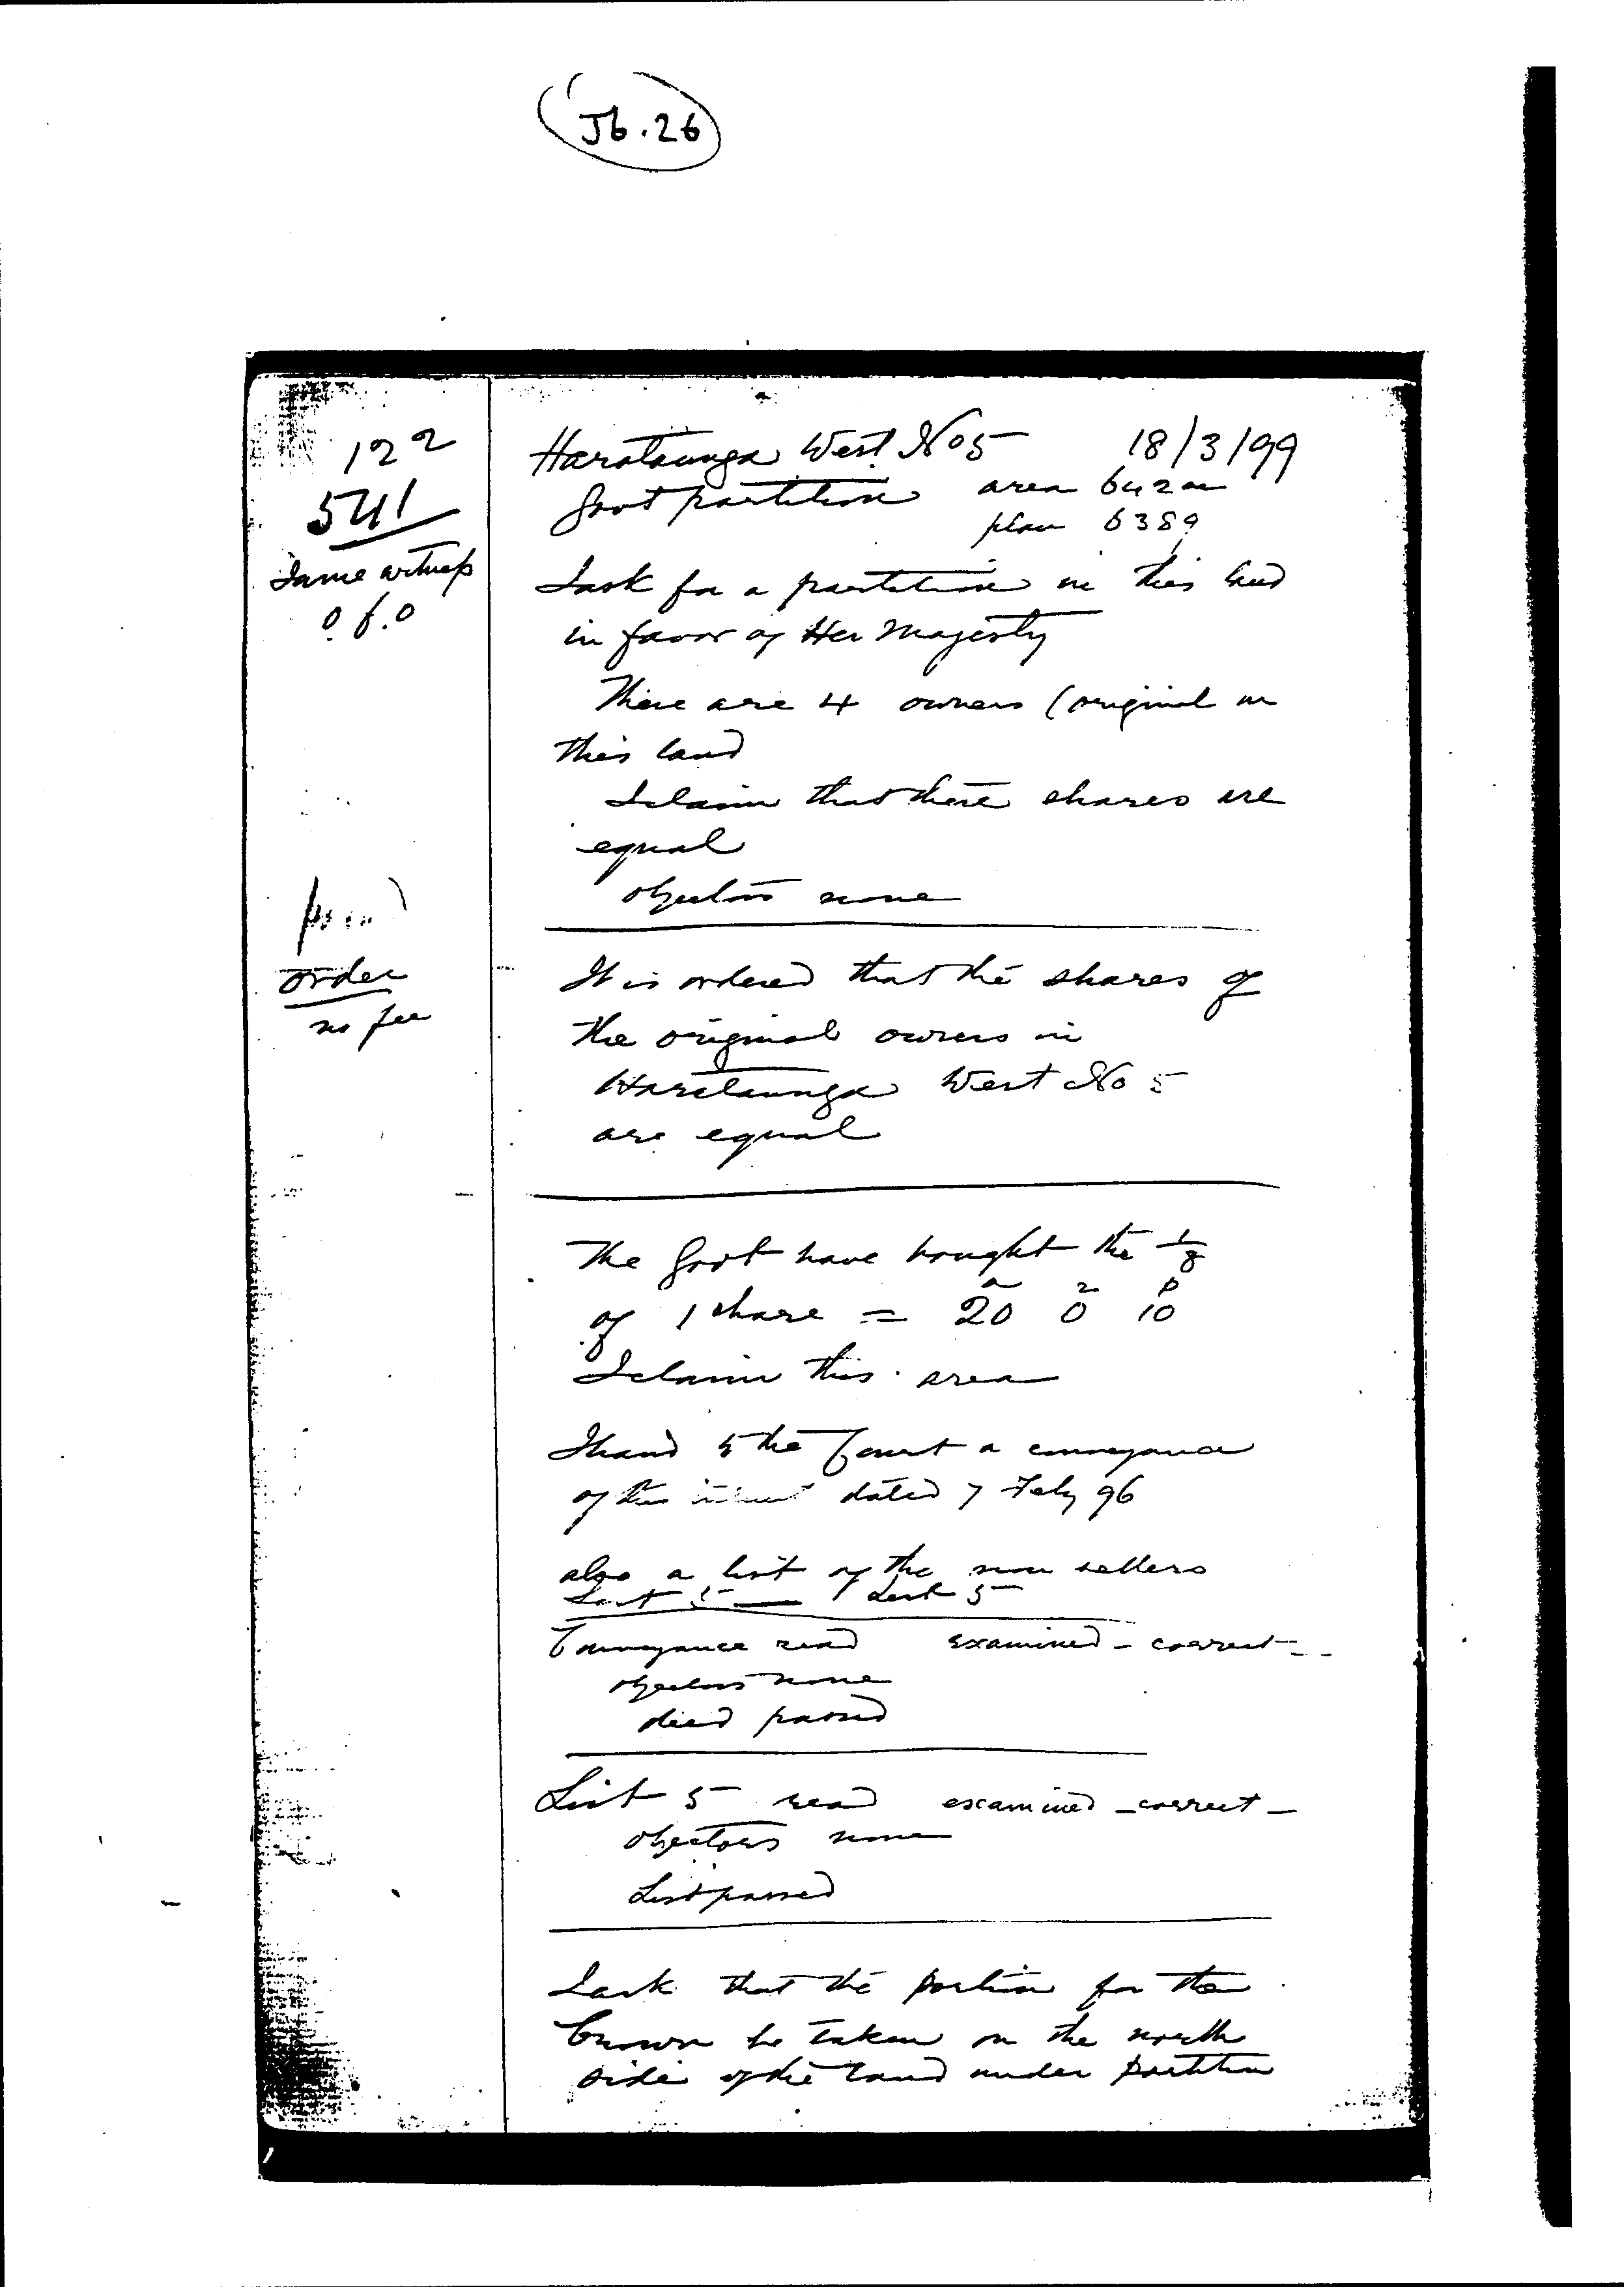 J6.26
122
541
Same witness
o. f. o
Harataunga West No 5 18/3/99
Govt partition area 642 ac
plan 6389
I ask for a partition in this land
in favor of Her Majesty
There are 4 owners (original in
this land
I claim that there shares are
equal
objectors none
order
no fee
It is ordered that the shares of
the original owners in
Harataunga West No 5
are equal
The Govt have bought the 1/8
of 1 share = 20a 0r 10p
I claim this area
I hand to the Court a conveyance
of this dated 7 Feby 96
also a list of the non sellers
List 5 List 5
Conveyance read examined - correct -
objectors none
deed passed
List 5 read examined - correct -
objectors none
List passed
I ask that the portion for the
Crown be taken on the north
side of the land under partition